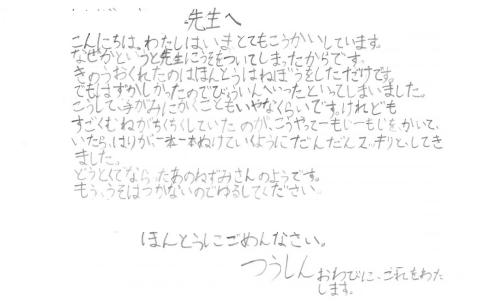 先生へ
こんにちは。わたしはいまとてもこうかいしています。
なぜかというと先生にうそをついてしまったからです。
きのうおくれたのはほんとうはねぼうをしただけです。
でもはずかしかったのでびょういんへいったといってしまいました。
こうして、手がみにかくこともいやなくらいです。けれども
すごくむねがちくちくしていたのが、こうやって一もじ一もじを、かいて、
いたら、はりが、一本一本ぬけていくようにだんだんスッキリと、してき
ました。
どうとくでならったあのねずみさんのようです。
もう、うそはつかないのでゆるしてください。
ほんとうにごめんなさい。
つうしん
おわびに、これをわた
します。